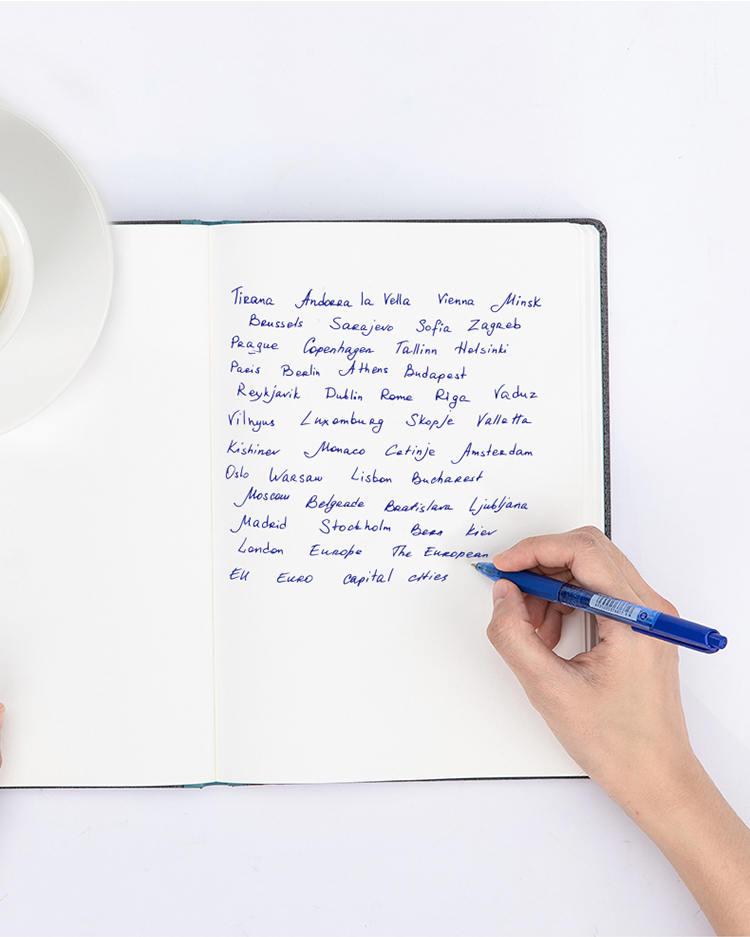 Tirana Andorra la Vella Vienna Minsk
Brussels Sarajevo Sofia Zagreb
Prague Copenhagen Tallinn Helsinki
Paris Berlin Athens Budapest
Reykjavik Dublin Rome Riga Vaduz
Vilnyus Luxemburg Skopje Valletta
Kishinev Monaco Cetinje Amsterdam
Oslo Warsaw Lisbon Bucharest
Moscow Belgrade Bratislava Ljubljana
Madrid Stockholm Bern Kiev
London Europe The European
EU Euro capital cities